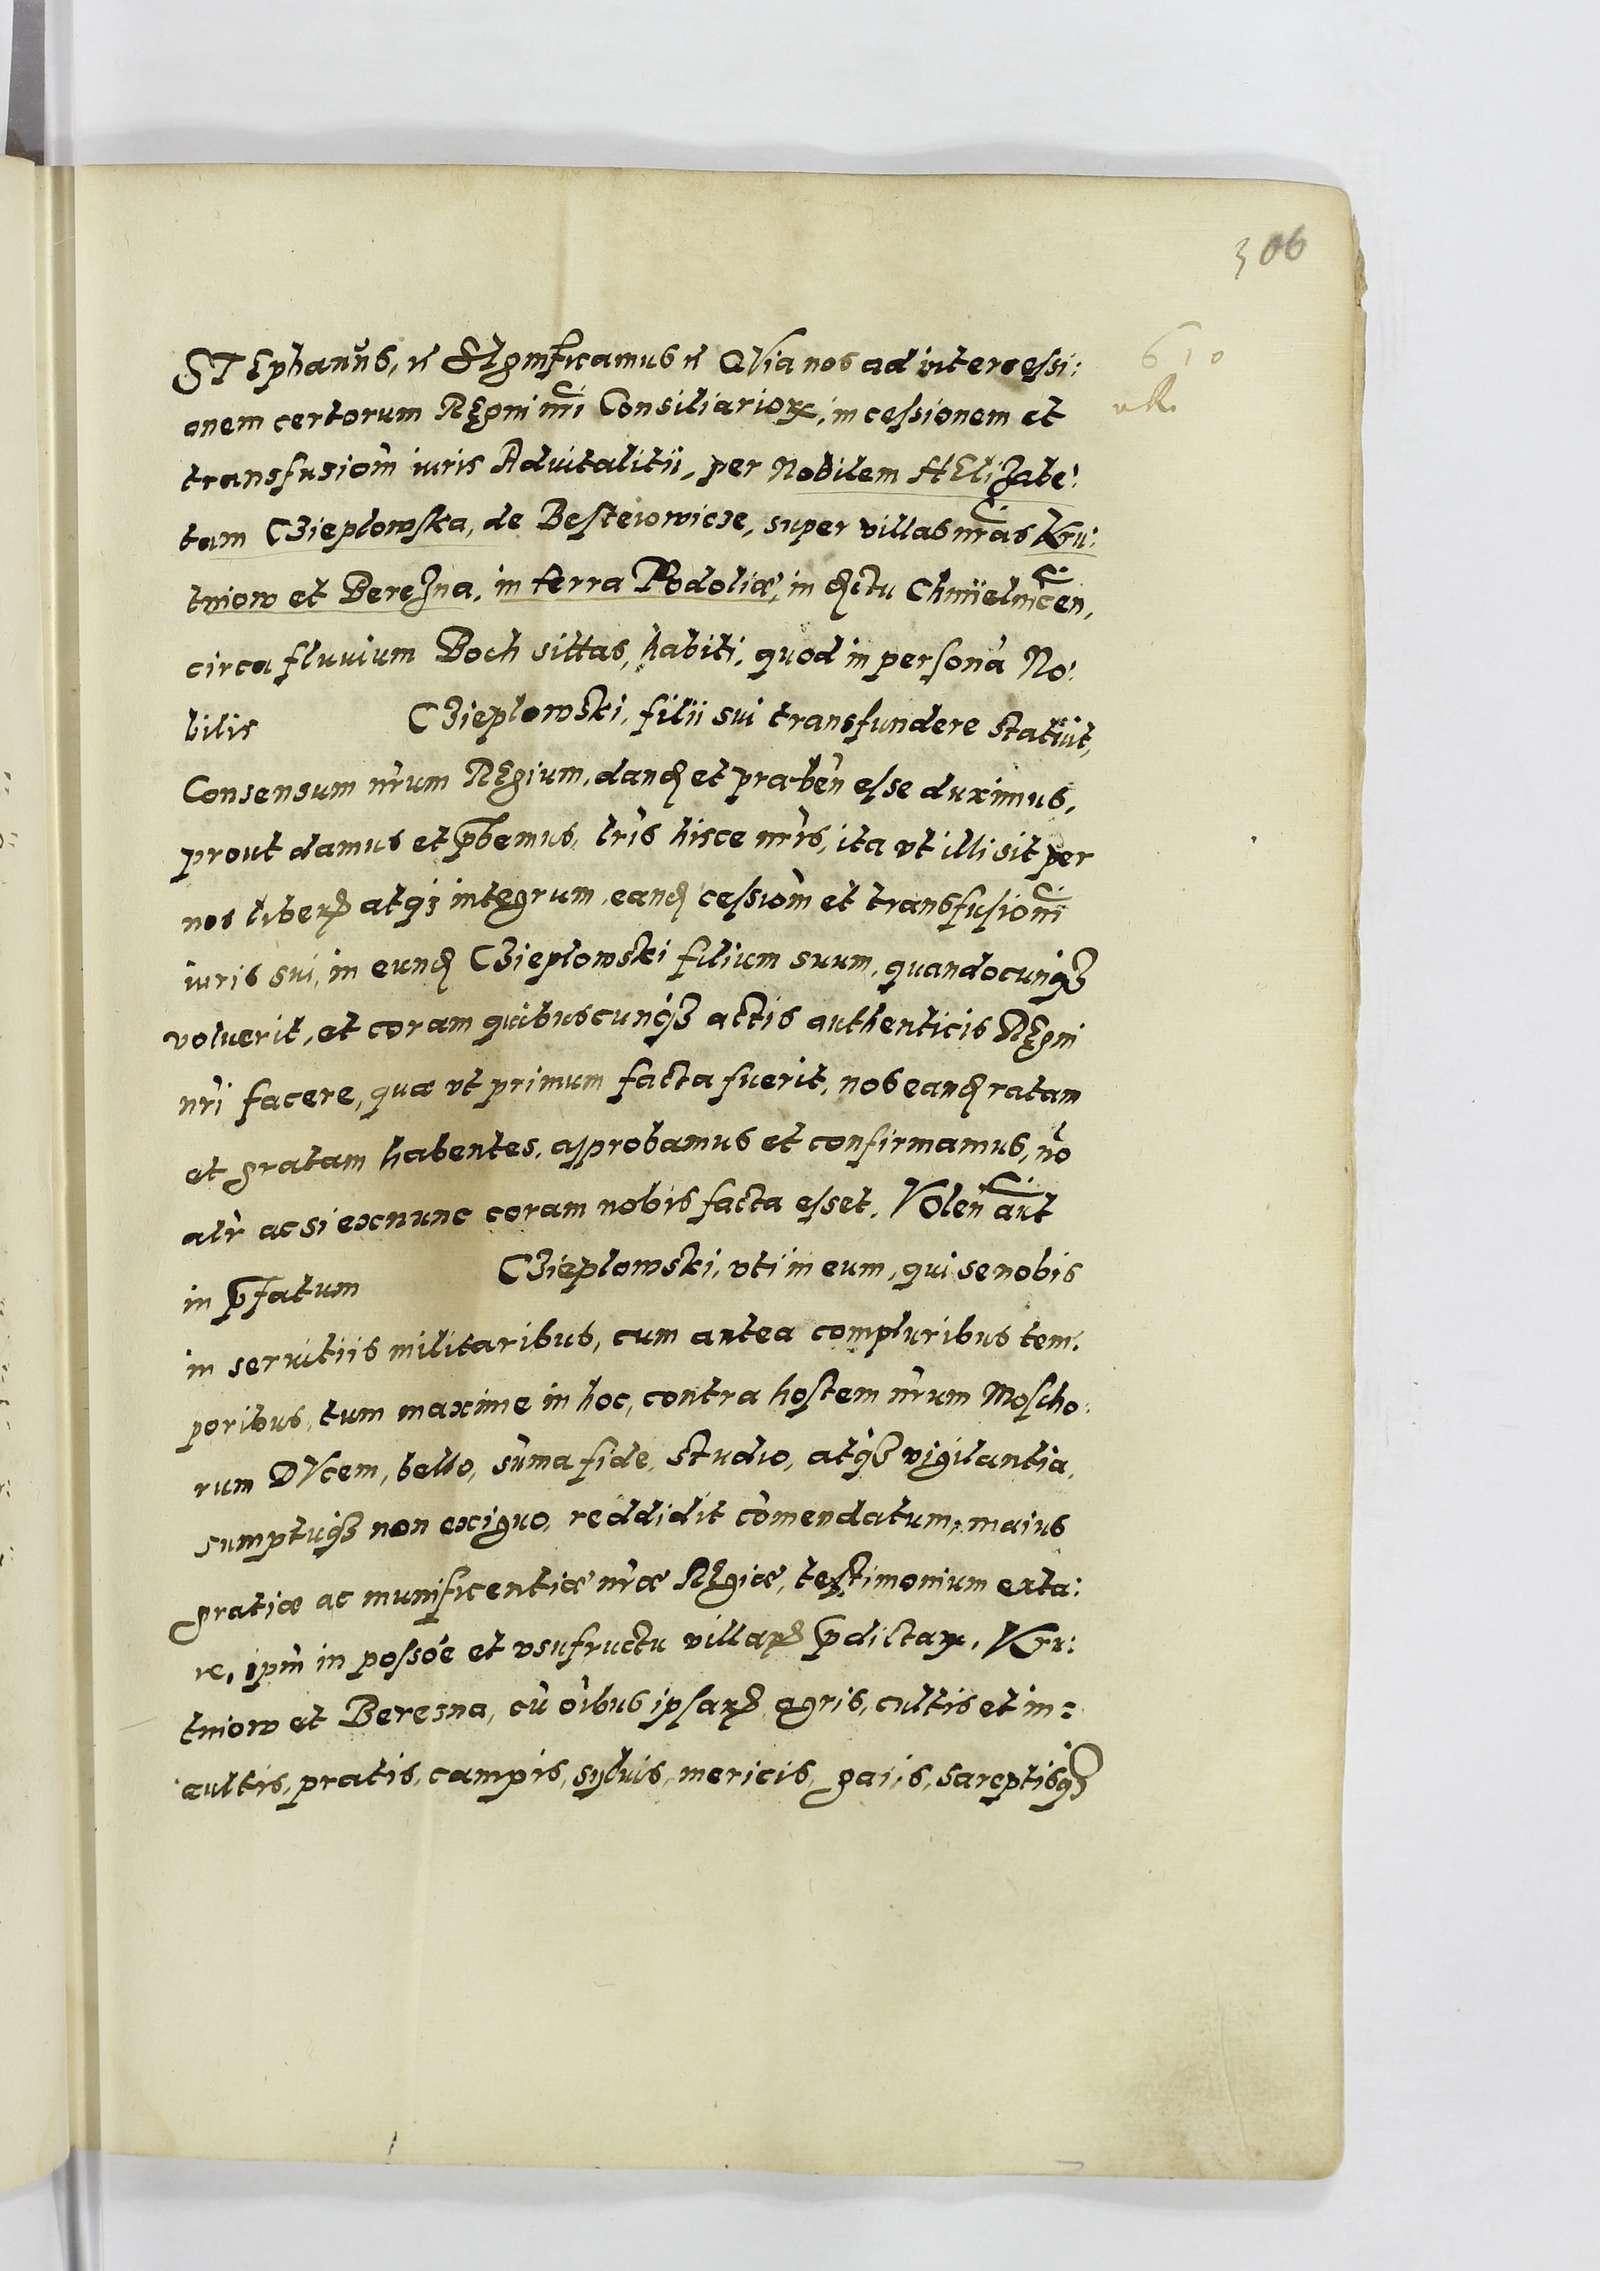 306
610
STEphanus, rc SIgnificamus rc QVia nos ad intercessi:
onem certorum REgni nri Consiliariorꝝ, in cessionem et
transfusiom iuris Aduitalitii, per Nobilem HElizabe:
tam CZieplowska, de Besteiowicze, super villas nras Kru:
tniow et Berezna, in terra Podoliæ, in dictu Chmielnicen,
circa fluuium Boch sittas, habiti, quod in persona No:
bilis CZieplowski, filii sui transfundere statuit,
Consensum nrum REgium, dand et præben esse duximus,
prout damus et pbemus, tris hisce nris, ita vt illi sit per
nos liberꝝ atqꝫ integrum, eand cessiom et transfusiom
iuris sui, in eund CZieplowski filium suum, quandocunqꝫ
voluerit, et coram quibuscunqꝫ actis authenticis REgni
nri facere, quæ vt primum facta fuerit, nos eand ratam
et gratam habentes, approbamus et confirmamus, no
alr ac si exnunc coram nobis facta esset. VOlen aut
in pfatum CZieplowski, vti in eum, qui se nobis
in seruitiis militaribus, cum antea compluribus tem:
poribus, tum maxime in hoc, contra hostem nrum Moscho:
rum DVcem, bello, suma fide, studio, atqꝫ vigilantia,
sumptuqꝫ non exiguo, reddidit comendatum, maius
gratiæ ac munificentiæ nræ REgiæ, testimonium exta:
re, ipm in possoe et vsufructu villarꝝ pdictarꝝ, Kru:
tniow et Beresna, cu oibus ipsarꝝ agris, cultis et in=
cultis, pratis, campis, syluis, mericis, gaiis, sareptisqꝫ